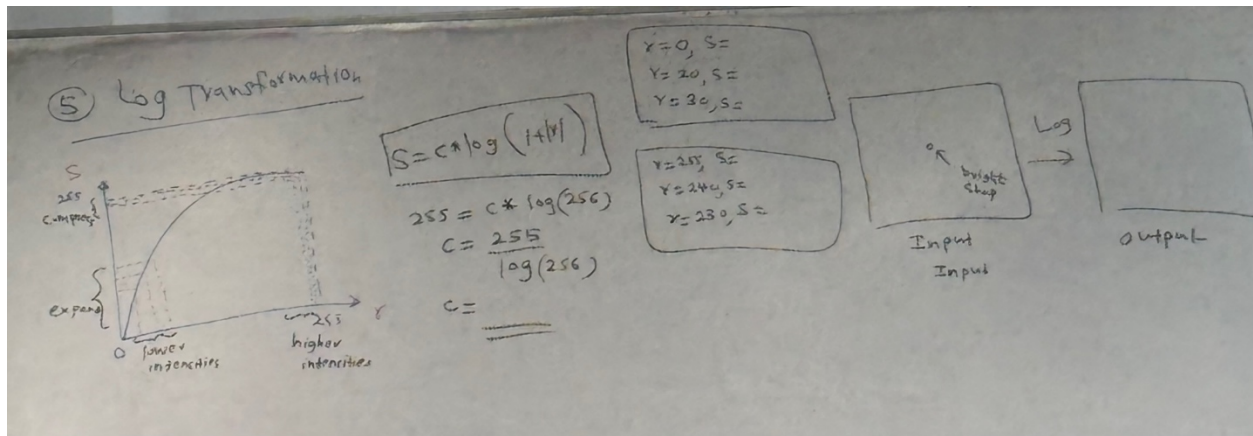 ⑤ Log Transformation
S
255
compress
expand
0
lower
intencities
255
higher
intencities
r
S=c*log(1+|r|)
255 = c* log(256)
c= 255
log(256)
c=
r=0, S=
r=20, S=
r=30, S=
r=255, S=
r=240, S=
r=230, S=
bright
Input
Input
Log
output